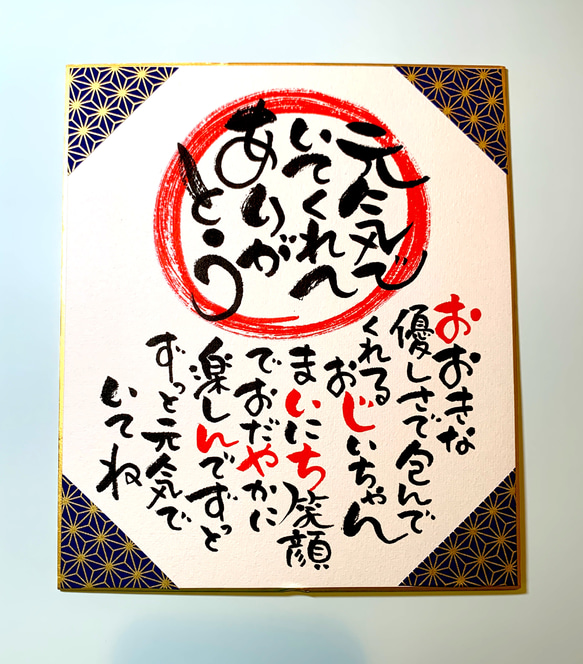 元気で
いてくれて
ありが
とう
おおきな
優しさで包んで
くれる
おじいちゃん
まいにち笑顔
でおだやかに
楽しんでずっと
ずっと元気で
いてね